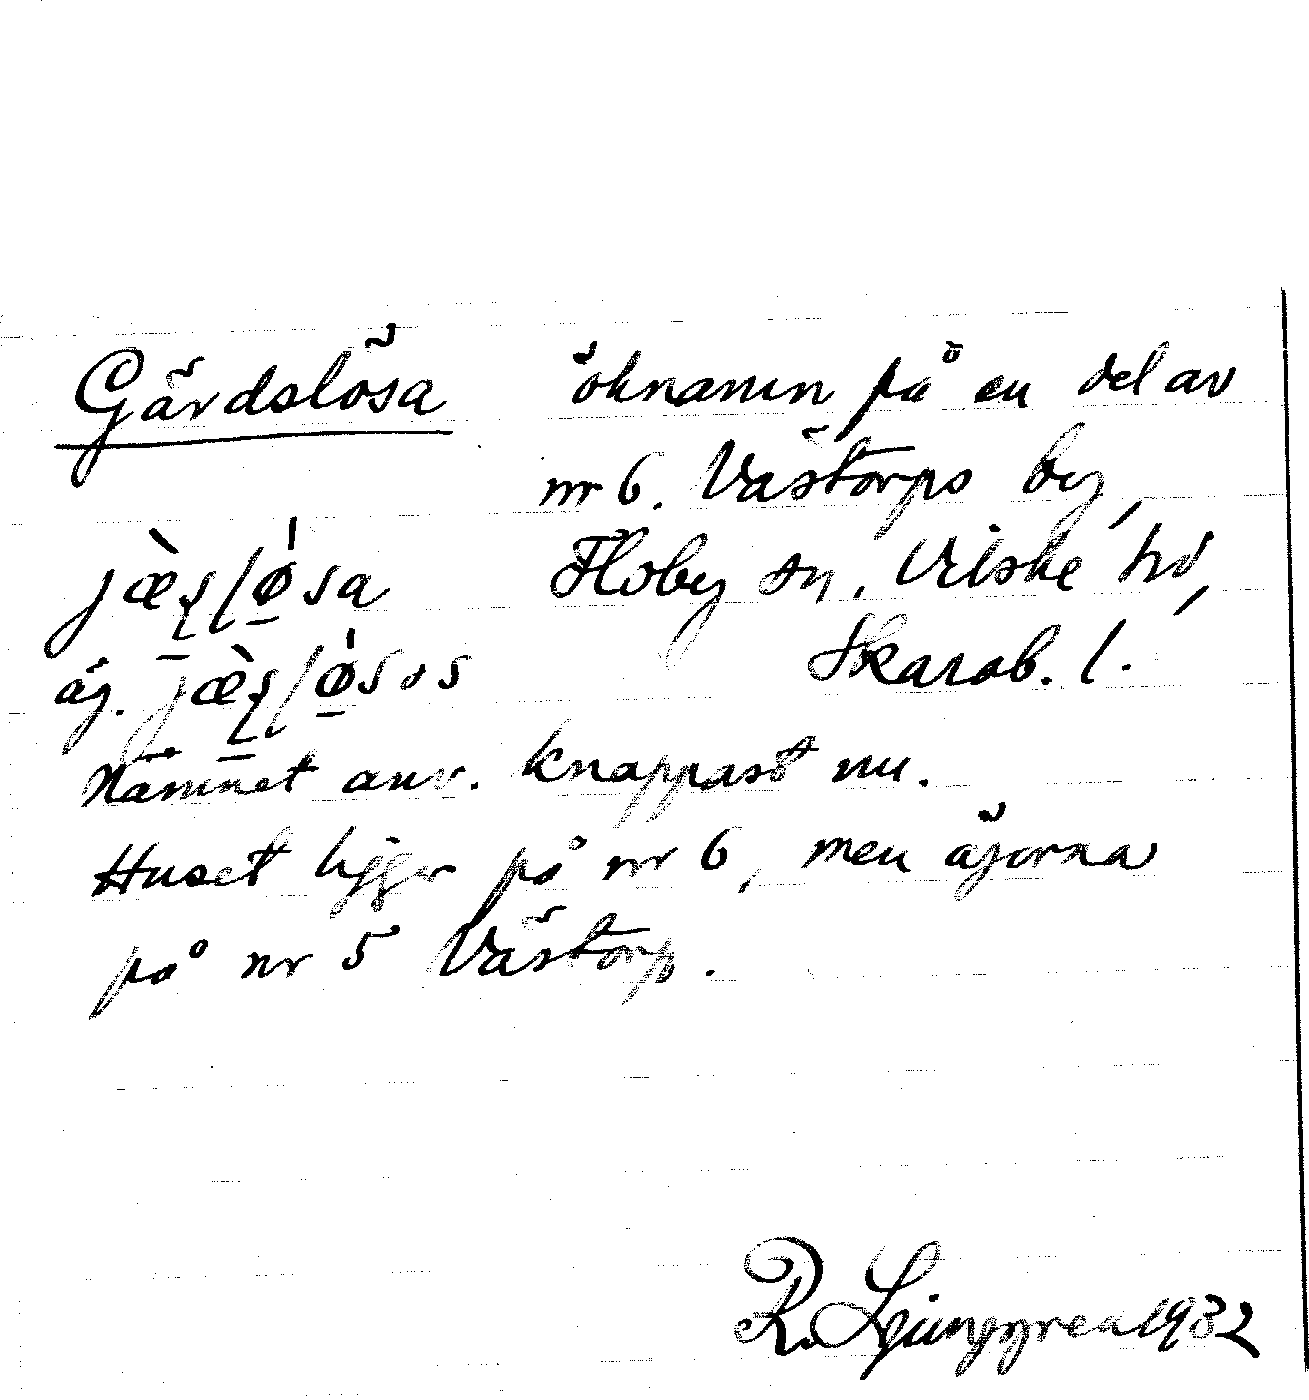 Gärdslösa öknamn på en del av
nr 6. Västorps by,
Floby sn, Vilske hd,
Skarab. l.
äg.
Namnet anv. knappast nu.
Huset ligger på nr 6, men ägorna
på nr 5 Västorp.
R. Ljunggren 1932